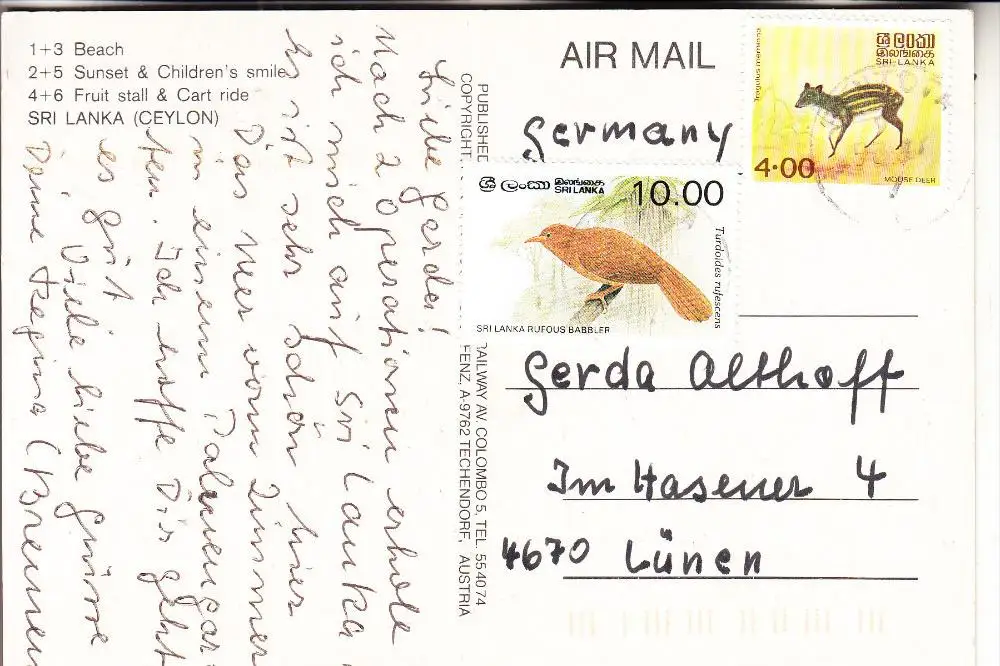 1+3 Beach
2+5 Sunset & Children's smile
4+6 Fruit stall & Cart ride
SRI LANKA (CEYLON)
Liebe Gerda!
Nach 2 Operationen erhole
ich mich auf Sri Lanka
Es ist sehr schön hier
Das Meer vorm Zimmer
in einem Palmengar-
ten. Ich hoffe Dir geht
es gut
Viele liebe Grüsse
Deine Regina (Bremen
PUBLISHED
COPYRIGHT
RAILWAY AV. COLOMBO 5, TEL. 554074
FENZ, A-9762 TECHENDORF, AUSTRIA
AIR MAIL
ශ්‍රී ලංකා
இலங்கை
SRI LANKA
4.00
MOUSE DEER
Germany
ශ්‍රී ලංකා
இலங்கை
SRI LANKA
10.00
Turdoides rufescens
SRI LANKA RUFOUS BABBLER
Gerda Althoff
Im Hasener 4
4670 Lünen